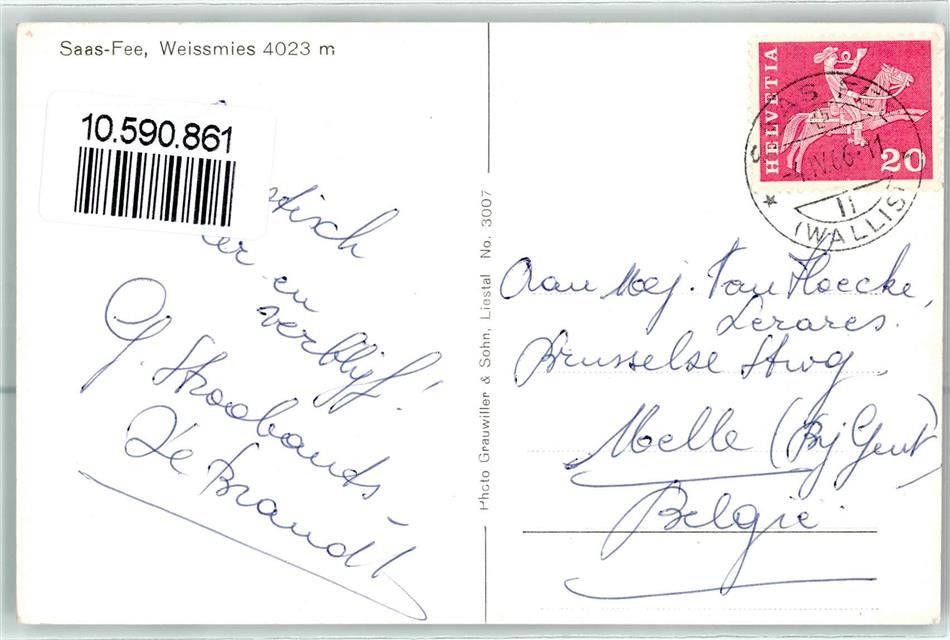 Saas-Fee, Weissmies 4023 m
10.590.861
en
verblijf!
G. Stroobants
De Brandt
Photo Grauwiller & Sohn, Liestal No. 3007
HELVETIA
20
SAAS-FEE
-4.IV.66-11
(WALLIS)
Aan Mej. Van Hoecke,
Lerares.
Brusselse Stwg,
Melle (Bij Gent)
België.